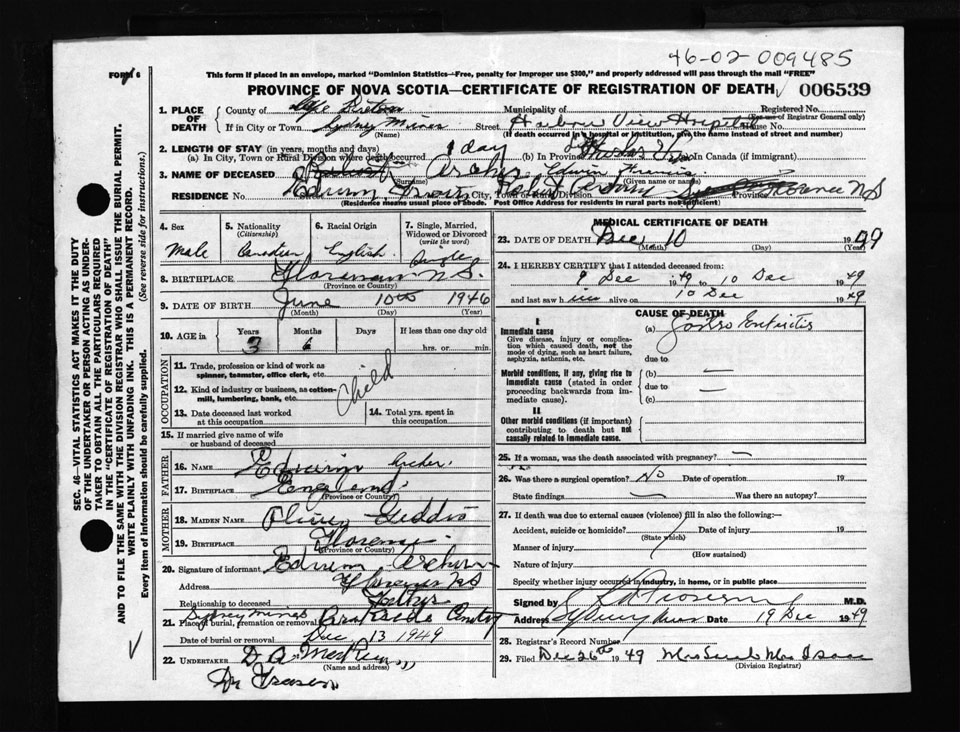 46-02-009485
FORM 6
This form if placed in an envelope, marked "Dominion Statistics—Free, penalty for improper use $300," and properly addressed will pass through the mail "FREE"
PROVINCE OF NOVA SCOTIA—CERTIFICATE OF REGISTRATION OF DEATH 006539
1. PLACE OF DEATH County of Cape Breton Municipality of Registered No.
(For use of Registrar General only)
If in City or Town Sydney Mines Street Harbour View Hospital House No.
(Name) (If death occurred in a hospital or institution, give its name instead of street and number)
2. LENGTH OF STAY (in years, months and days)
(a) In City, Town or Rural Division where death occurred 1 day (b) In Province (c) In Canada (if immigrant)
3. NAME OF DECEASED Archer Edwin
Surname (Given name or names)
RESIDENCE No. Street City, Town or Rural Division Province Florence N S
(Residence means usual place of abode. Post Office Address for residents in rural parts not sufficient)
4. Sex Male
5. Nationality (Citizenship) Canadian
6. Racial Origin English
7. Single, Married, Widowed or Divorced (write the word) Single
8. BIRTHPLACE N.S.
(Province or Country)
9. DATE OF BIRTH June 10th 1946
(Month) (Day) (Year)
10. AGE in Years Months Days If less than one day old
3 6 hrs. or min.
OCCUPATION
11. Trade, profession or kind of work as spinner, teamster, office clerk, etc.
Child
12. Kind of industry or business, as cotton-mill, lumbering, bank, etc.
13. Date deceased last worked at this occupation
14. Total yrs. spent in this occupation
15. If married give name of wife or husband of deceased
FATHER
16. NAME Edwin Archer
17. BIRTHPLACE England
(Province or Country)
MOTHER
18. MAIDEN NAME Geddis
19. BIRTHPLACE Florence
(Province or Country)
20. Signature of informant Edwin Archer
Address Florence N S
Relationship to deceased Father
Sydney Mines
21. Place of burial, cremation or removal Brookside Cemetery
Date of burial or removal Dec 13 1949
22. UNDERTAKER D A
(Name and address)
MEDICAL CERTIFICATE OF DEATH
23. DATE OF DEATH Dec 10 1949
(Month) (Day)
24. I HEREBY CERTIFY that I attended deceased from:
9 Dec 1949 to 10 Dec 1949
and last saw him alive on 10 Dec 1949
CAUSE OF DEATH
I.
Immediate cause
Give disease, injury or complication which caused death, not the mode of dying, such as heart failure, asphyxia, asthenia, etc.
(a) Gastro Enteritis
due to
Morbid conditions, if any, giving rise to immediate cause (stated in order proceeding backwards from immediate cause).
(b) —
due to —
(c)
II.
Other morbid conditions (if important) contributing to death but not causally related to immediate cause.
25. If a woman, was the death associated with pregnancy? —
26. Was there a surgical operation? No Date of operation 19
State findings — Was there an autopsy?
27. If death was due to external causes (violence) fill in also the following:—
Accident, suicide or homicide? Date of injury 19
(State which)
Manner of injury
(How sustained)
Nature of injury
Specify whether injury occurred in industry, in home, or in public place
Signed by M.D.
Address Sydney Mines Date 19 Dec 1949
28. Registrar's Record Number
29. Filed Dec 26th 1949 Mrs Sarah Mac Isaac
(Division Registrar)
SEC. 46—VITAL STATISTICS ACT MAKES IT THE DUTY
OF THE UNDERTAKER OR PERSON ACTING AS UNDER-
TAKER TO OBTAIN ALL THE PARTICULARS REQUIRED
IN THE "CERTIFICATE OF REGISTRATION OF DEATH"
AND TO FILE THE SAME WITH THE DIVISION REGISTRAR WHO SHALL ISSUE THE BURIAL PERMIT.
WRITE PLAINLY WITH UNFADING INK. THIS IS A PERMANENT RECORD.
Every item of information should be carefully supplied. (See reverse side for instructions.)